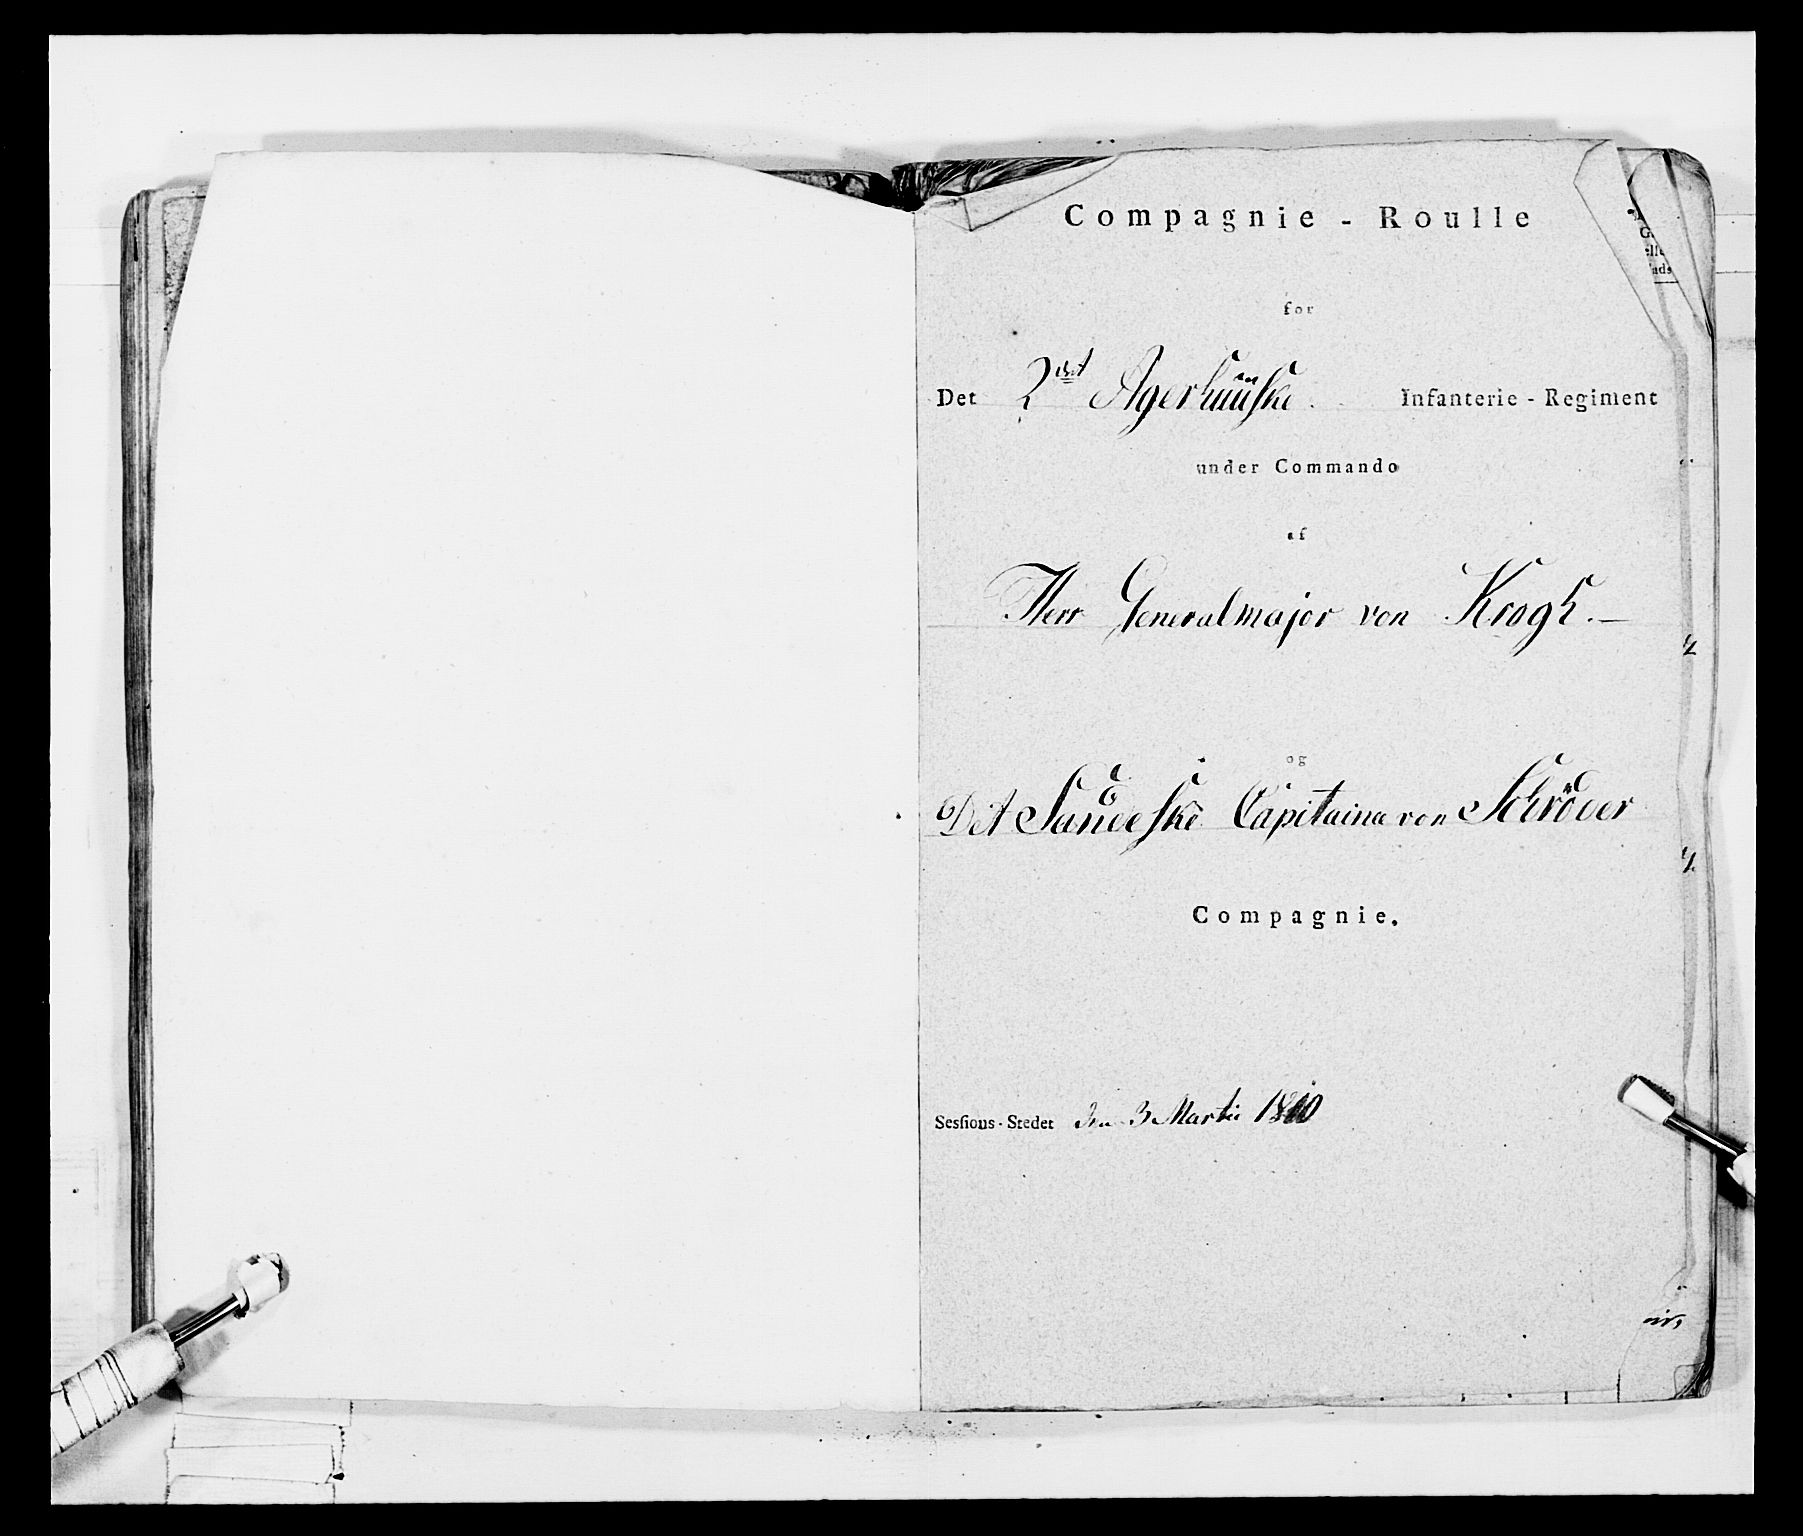 Compagnie - Roulle
for
Det 2det Agerhuusske Infanterie - Regiment
under Commando
af
Herr Generalmajor von Krogh. —
og
Det Sandeske Capitaine von Schrøder
Compagnie.
Sessions-Stedet den 3 Martii 1810